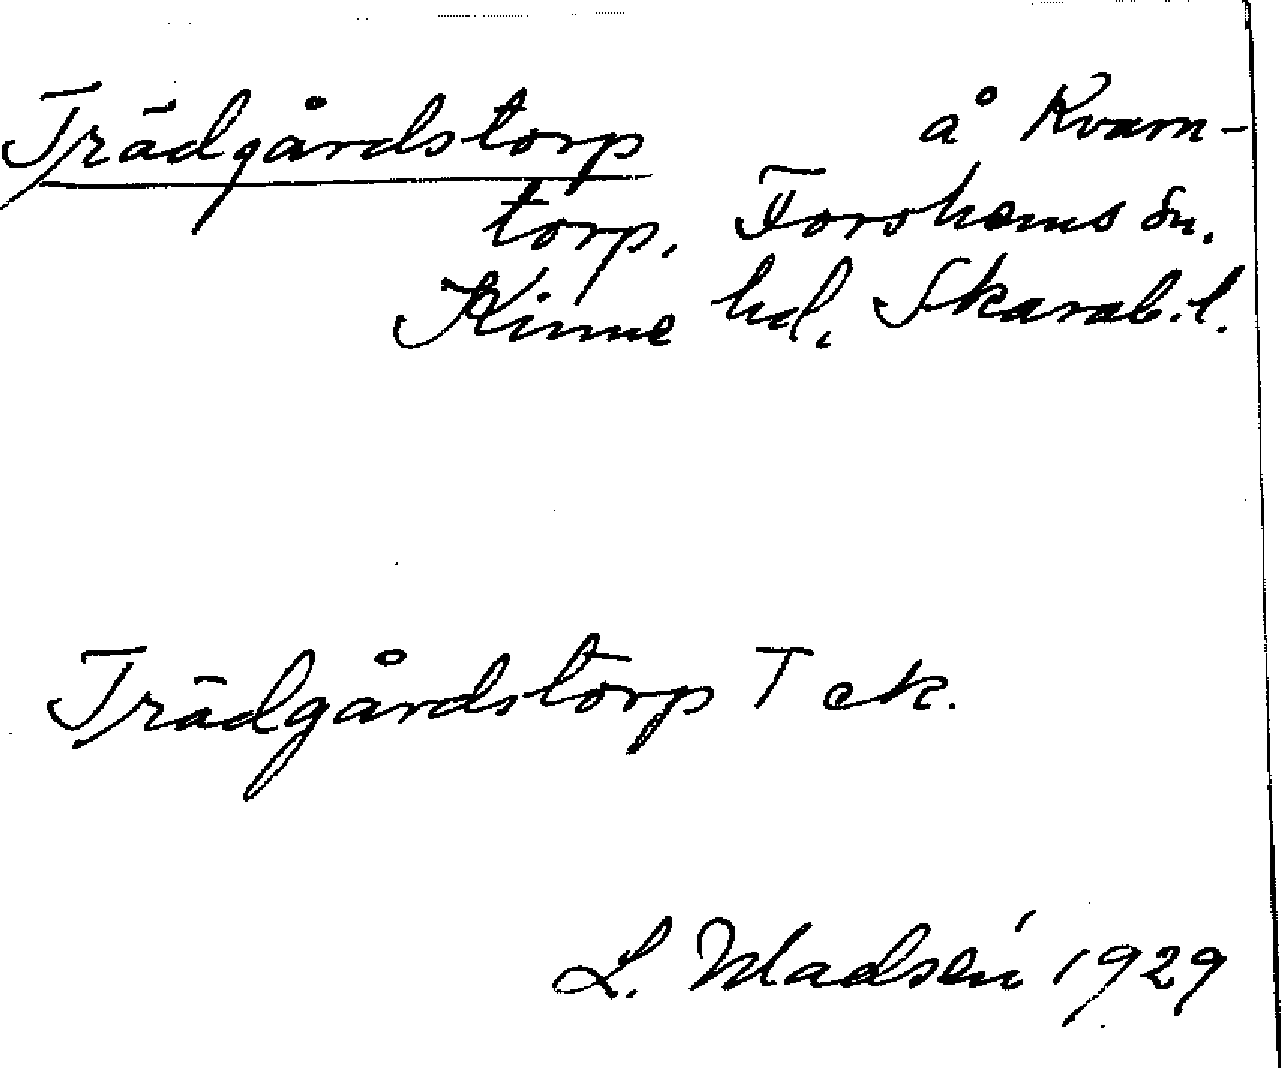 Trädgårdstorp å Kvarn-
torp, Forshems sn.
Kinne hd, Skarab. l.
Trädgårdstorp T ek.
L. Madsén 1929